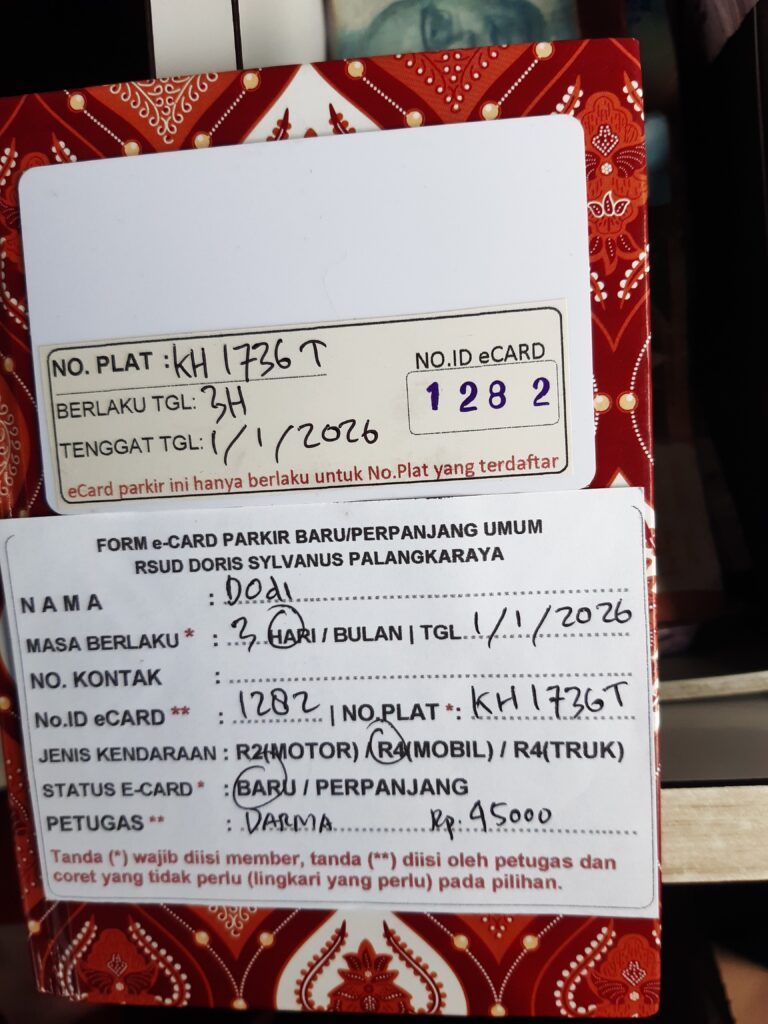 NO. PLAT : KH 1736 T
BERLAKU TGL: 3H
TENGGAT TGL: 1/1/2026
NO.ID eCARD
1282
eCard parkir ini hanya berlaku untuk No.Plat yang terdaftar
FORM e-CARD PARKIR BARU/PERPANJANG UMUM
RSUD DORIS SYLVANUS PALANGKARAYA
NAMA : Dodi
MASA BERLAKU * : 3 HARI / BULAN | TGL 1/1/2026
NO. KONTAK :
No.ID eCARD ** : 1282 | NO.PLAT *: KH 1736 T
JENIS KENDARAAN : R2(MOTOR) / R4(MOBIL) / R4(TRUK)
STATUS E-CARD * : BARU / PERPANJANG
PETUGAS ** : DARMA Rp. 45000
Tanda (*) wajib diisi member, tanda (**) diisi oleh petugas dan
coret yang tidak perlu (lingkari yang perlu) pada pilihan.